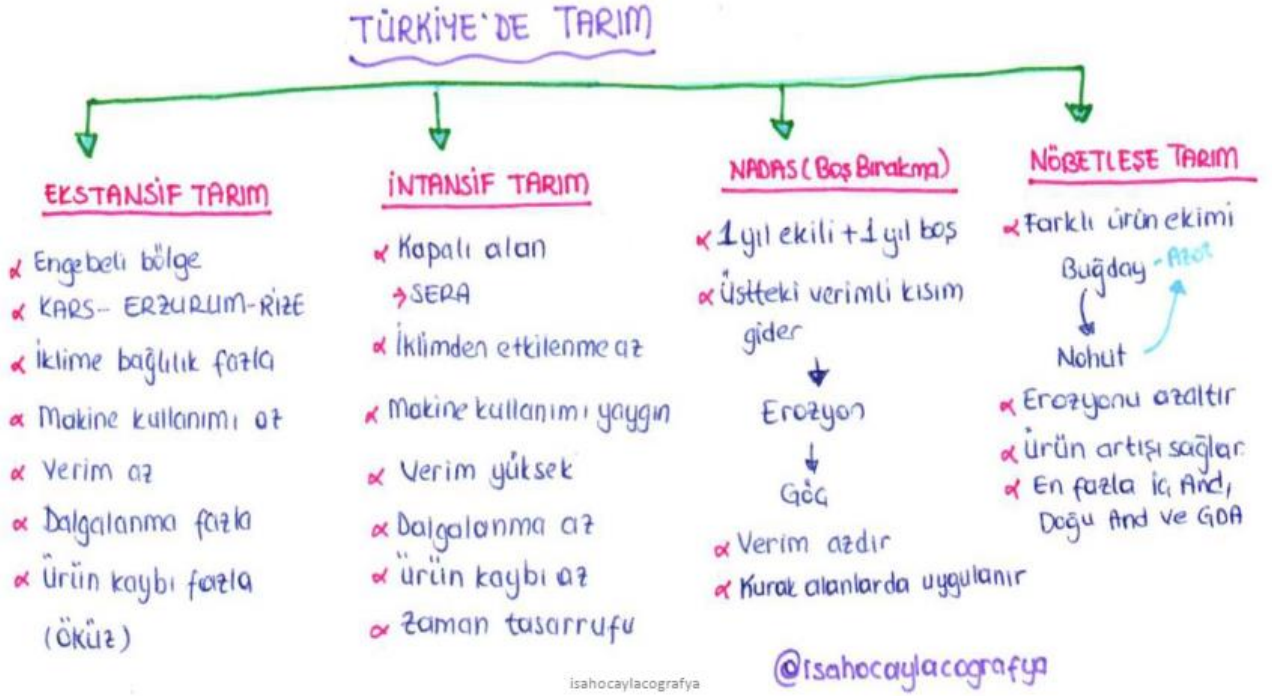 TÜRKİYE'DE TARIM
EKSTANSİF TARIM
Engebeli bölge
KARS- ERZURUM-RİZE
İklime bağlılık fazla
Makine kullanımı az
Verim az
Dalgalanma fazla
Ürün kaybı fazla
(ÖKÜZ)
İNTANSİF TARIM
Kapalı alan
→SERA
İklimden etkilenme az
Makine kullanımı yaygın
Verim yüksek
Dalgalanma az
Ürün kaybı az
Zaman tasarrufu
NADAS (Boş Bırakma)
1 yıl ekili + 1 yıl boş
Üstteki verimli kısım
gider
Erozyon
Göç
Verim azdır
Kurak alanlarda uygulanır
NÖBETLEŞE TARIM
Farklı ürün ekimi
Buğday - Azot
Nohut
Erozyonu azaltır
Ürün artışı sağlar
En fazla iç And,
Doğu And ve GDA
@isahocaylacografya
isahocaylacografya